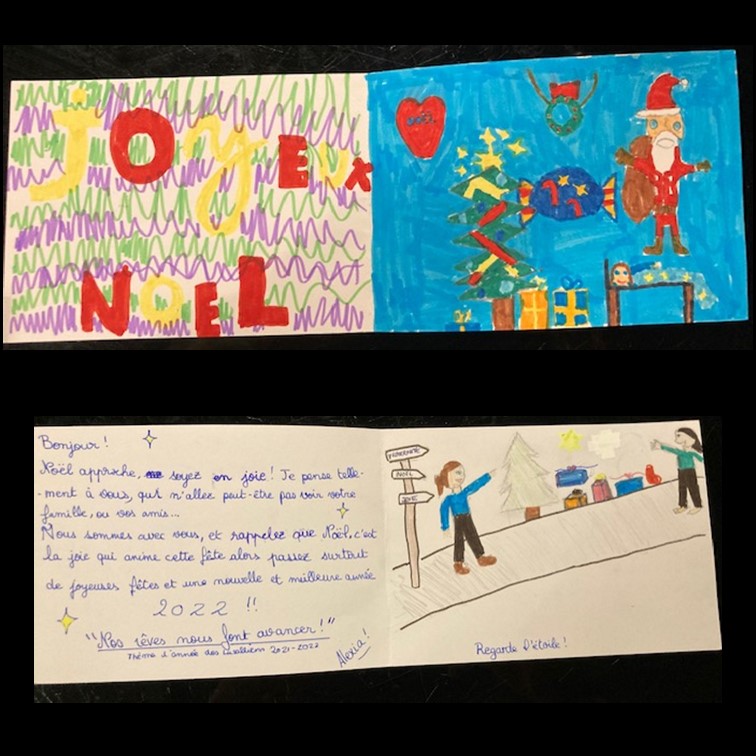 JOyEux
NOEL
NOËL
Bonjour !
Noël approche, soyez en joie ! Je pense telle-
-ment à vous, qui n'allez peut-être pas voir votre
famille, ou vos amis...
Nous sommes avec vous, et rappelez que Noël, c'est
la joie qui anime cette fête alors passez surtout
de joyeuses fêtes et une nouvelle et meilleure année
2022 !!
"Nos rêves nous font avancer !"
Thème d'année des Lasalliens 2021-2022
Alexia !
FRATERNITÉ
NOËL
JOIE
Regarde l'étoile !